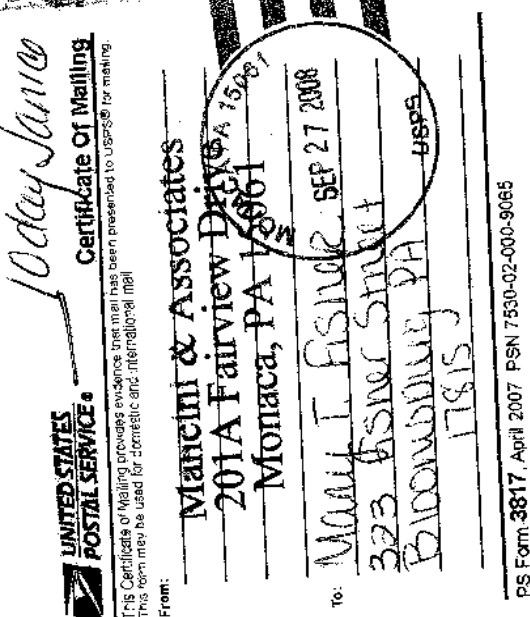 10 day Service
UNITED STATES
POSTAL SERVICE®
Certificate Of Mailing
This Certificate of Mailing provides evidence that mail has been presented to USPS® for mailing.
This form may be used for domestic and international mail
From:
Mancini & Associates
201A Fairview Drive
Monaca, PA 15061
MONACA PA 15061
SEP 27 2008
USPS
To:
323 Fisher Street
Bloomsburg PA
17815
PS Form 3817, April 2007 PSN 7530-02-000-9065